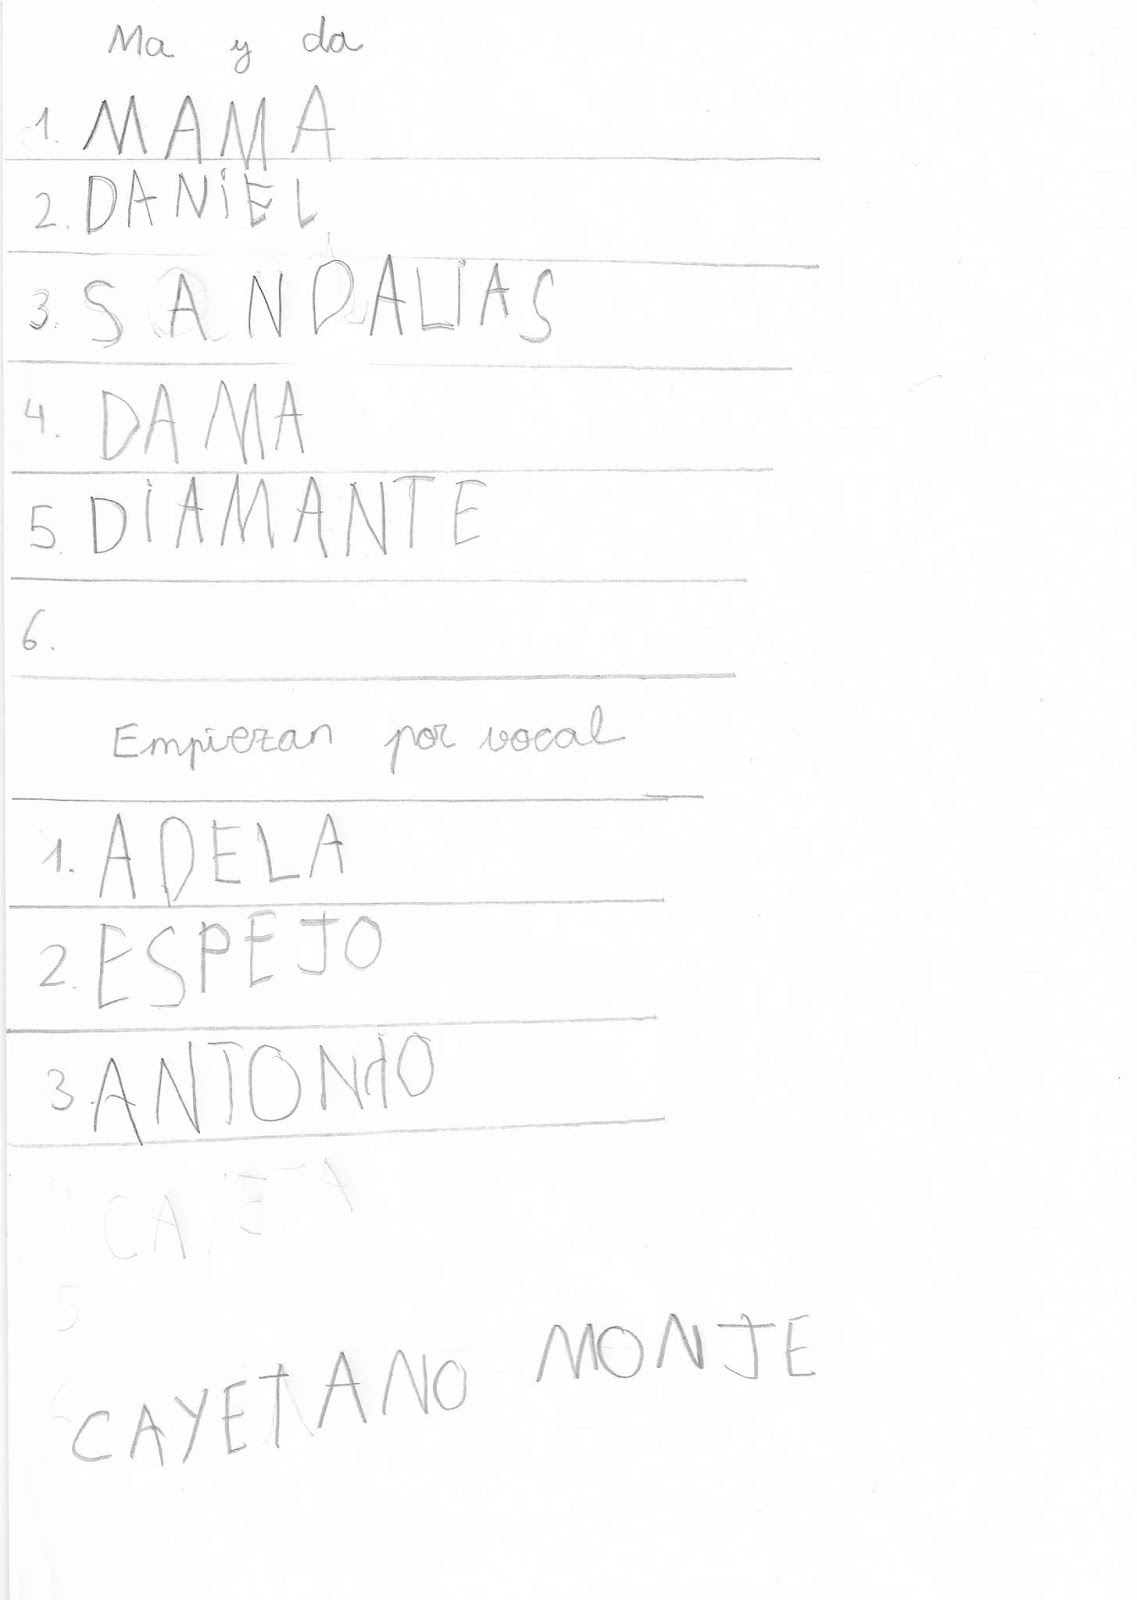 Ma y da
1. MAMA
2. DANiEL
3. SANDALiAS
4. DAMA
5. DiAMANTE
6.
Empiezan por vocal
1. ADELA
2. ESPEJO
3. ANTONiO
CAYETA
5
CAYETANO MONJE